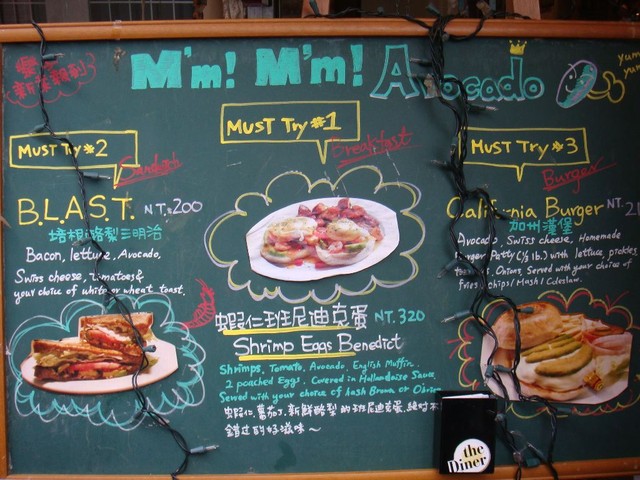 M'm! M'm! Avocado
yum
yum
MUST Try #2
Sandwich
B.L.A.S.T. NT.200
培根酪梨三明治
Bacon, lettuce, Avocado,
Swiss cheese, tomatoes &
your choice of white or wheat toast.
MUST Try #1
Breakfast
蝦仁班尼迪克蛋 NT.320
Shrimp Eggs Benedict
Shrimps, Tomato, Avocado, English Muffin
2 poached Eggs. Covered in Hollandaise Sauce
Served with your choice of hash Brown or
蝦仁、蕃茄、新鮮酪梨的班尼迪克蛋,絕對不
錯過的好滋味~
MUST Try #3
Burger
California Burger NT.
加州漢堡
Avocado, Swiss cheese, Homemade
Burger Patty (⅓ lb.) with lettuce, pickles,
Onions, Served with your choice of
fries/chips/Mash/Coleslaw.
the
Diner